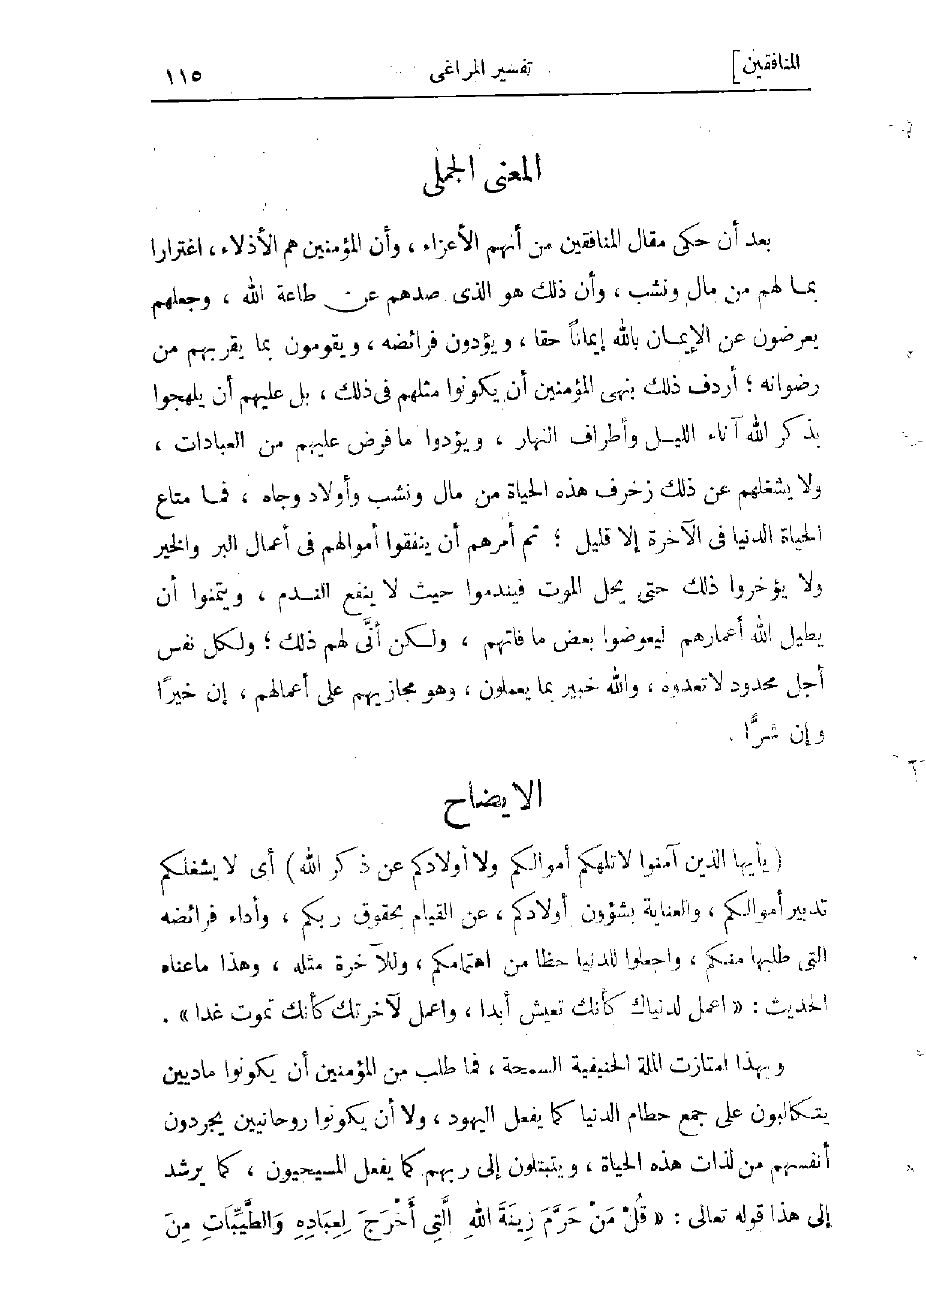 المنافقين]
تفسير المراغى
١١٥
المعنى الجملى
بعد أن حكى مقال المنافقين من أنهم الأعزاء ، وأن المؤمنين هم الأذلاء ، اغترارا
بما لهم من مال ونشب ، وأن ذلك هو الذى صدهم عن طاعة الله ، وجعلهم
يعرضون عن الإيمان بالله إيماناً حقا ، ويؤدون فرائضه ، ويقومون بما يقربهم من
رضوانه ؛ أردف ذلك بنهى المؤمنين أن يكونوا مثلهم فى ذلك ، بل عليهم أن يلهجوا
بذكر الله آناء الليل وأطراف النهار ، ويؤدوا ما فرض عليهم من العبادات ،
ولا يشغلهم عن ذلك زخرف هذه الحياة من مال ونشب وأولاد وجاه ، فما متاع
الحياة الدنيا فى الآخرة إلا قليل ؛ ثم أمرهم أن ينفقوا أموالهم فى أعمال البر والخير
ولا يؤخروا ذلك حتى يحل الموت فيندموا حيث لا ينفع الندم ، ويتمنوا أن
يطيل الله أعمارهم ليعوضوا بعض ما فاتهم ، ولكن أنَّى لهم ذلك ؛ ولكل نفس
أجل محدود لا تعدوه ، والله خبير بما يعملون ، وهو مجازيهم على أعمالهم ، إن خيرًا
وإن شرًّا .
الايضاح
( يأيها الذين آمنوا لا تلهكم أموالكم ولا أولادكم عن ذكر الله ) أى لا يشغلكم
تدبير أموالكم ، والعناية بشؤون أولادكم ، عن القيام بحقوق ربكم ، وأداء فرائضه
التى طلبها منكم ، واجعلوا للدنيا حظا من اهتمامكم ، وللآخرة مثله ، وهذا ما عناه
الحديث : « اعمل لدنياك كأنك تعيش أبدا ، واعمل لآخرتك كأنك تموت غدا » .
وبهذا امتازت الملة الحنيفية السمحة ، فما طلب من المؤمنين أن يكونوا ماديين
يتكالبون على جمع حطام الدنيا كما يفعل اليهود ، ولا أن يكونوا روحانيين يجردون
أنفسهم من لذات هذه الحياة ، ويتبتلون إلى ربهم كما يفعل المسيحيون ، كما يرشد
إلى هذا قوله تعالى : « قُلْ مَنْ حَرَّمَ زِينَةَ اللهِ الَّتِى أَخْرَجَ لِعِبَادِهِ وَالطَّيِّبَاتِ مِنَ